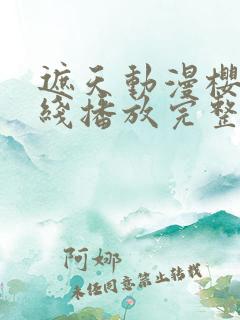 遮天動漫櫻
綫播放完整
阿娜
未经同意禁止转载